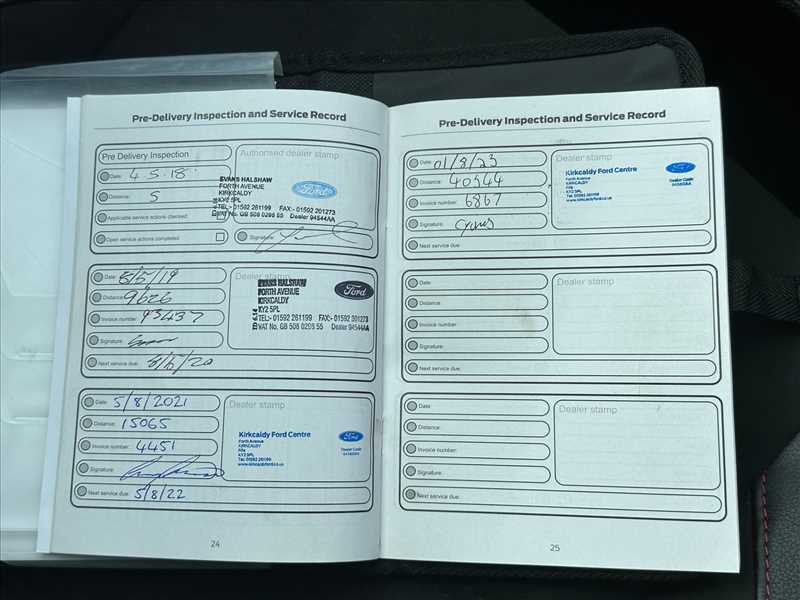 Pre-Delivery Inspection and Service Record
Pre Delivery Inspection
Date: 4-5-18
Distance: 5
Applicable service actions checked:
Open service actions completed:
Authorised dealer stamp
EVANS HALSHAW
FORTH AVENUE
KIRKCALDY
KY2 5PL
TEL:- 01592 261199 FAX:- 01592 201273
VAT No. GB 508 0208 55 Dealer 94544AA
Ford
Signature:
Date: 8/5/19
Distance: 9626
Invoice number: 93437
Signature:
Next service due: 8/5/20
Dealer stamp
EVANS HALSHAW
FORTH AVENUE
KIRKCALDY
KY2 5PL
TEL:- 01592 261199 FAX:- 01592 201273
VAT No. GB 508 0208 55 Dealer 94544AA
Ford
Date: 5/8/2021
Distance: 15065
Invoice number: 4451
Signature:
Next service due: 5/8/22
Dealer stamp
Kirkcaldy Ford Centre
Forth Avenue
KIRKCALDY
Fife
KY2 5PL
Tel: 01592 261199
www.kirkcaldyford.co.uk
Ford
Dealer Code
24
Pre-Delivery Inspection and Service Record
Date: 01/8/23
Distance: 40344
Invoice number: 6867
Signature:
Next service due:
Dealer stamp
Kirkcaldy Ford Centre
Forth Avenue
KIRKCALDY
Fife
KY2 5PL
Tel: 01592 261199
www.kirkcaldyford.co.uk
Ford
Dealer Code
Date:
Distance:
Invoice number:
Signature:
Next service due:
Dealer stamp
Date:
Distance:
Invoice number:
Signature:
Next service due:
Dealer stamp
25